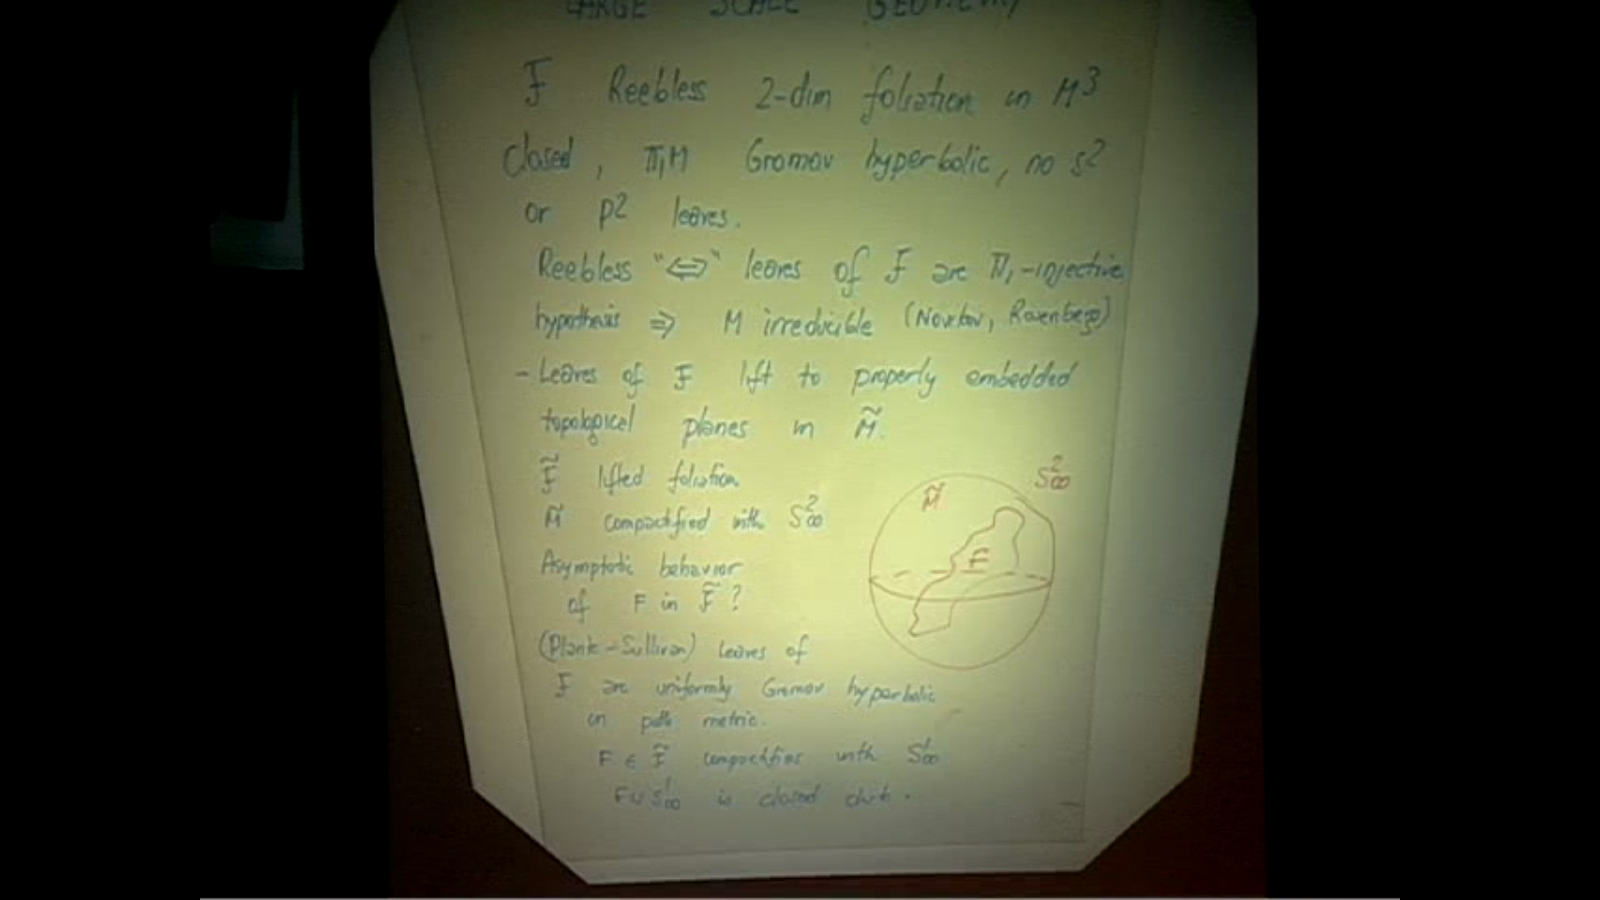 LARGE SCALE GEOMETRY
F Reebless 2-dim foliation in M³
closed, π₁M Gromov hyperbolic, no S²
or P² leaves.
Reebless "⇔" leaves of F are π₁-injective
hypothesis ⇒ M irreducible (Novikov, Rosenberg)
- Leaves of F lift to properly embedded
topological planes in M̃.
F̃ lifted foliation
M̃ compactified with S²∞
M̃ S²∞
F
Asymptotic behavior
of F in F̃?
(Plante-Sullivan) leaves of
F are uniformly Gromov hyperbolic
in path metric.
F ∈ F̃ compactifies with S¹∞
F∪S¹∞ is closed disk.